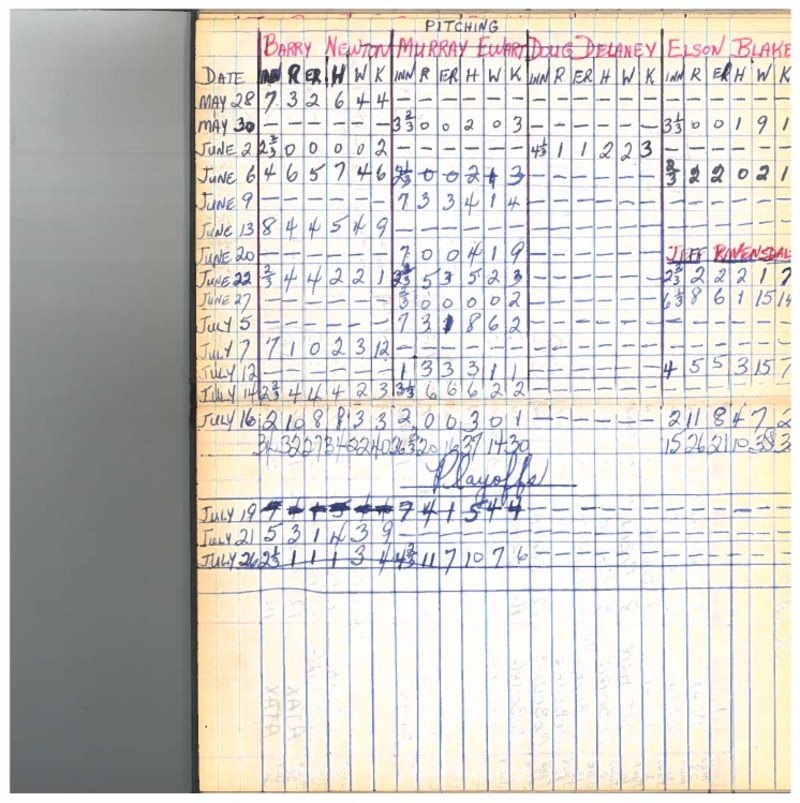 PITCHING
BARRY NEWTON MURRAY EWART DOUG DELANEY ELSON BLAKE
DATE INN R ER H W K INN R ER H W K INN R ER H W K INN R ER H W K
MAY 28 7 3 2 6 4 4 — — — — — — — — — — — — — — — — — —
MAY 30 — — — — — — 3 2/3 0 0 2 0 3 — — — — — — 3 1/3 0 0 1 9 1
JUNE 2 2 2/3 0 0 0 0 2 — — — — — — 4 1/3 1 1 2 2 3 — — — — — —
JUNE 6 4 6 5 7 4 6 2 1/3 0 0 2 1 3 — — — — — — 2/3 2 2 0 2 1
JUNE 9 — — — — — — 7 3 3 4 1 4 — — — — — — — — — — — —
JUNE 13 8 4 4 5 4 9 — — — — — — — — — — — — — — — — — —
JUNE 20 — — — — — — 7 0 0 4 1 9 — — — — — — JEFF RAVENSDAL
JUNE 22 2/3 4 4 2 2 1 2 2/3 5 3 5 2 3 — — — — — — 2 2/3 2 2 2 1 7
JUNE 27 — — — — — — 2/3 0 0 0 0 2 — — — — — — 6 1/3 8 6 1 15 14
JULY 5 — — — — — — 7 3 1 8 6 2 — — — — — — — — — — — —
JULY 7 7 1 0 2 3 12 — — — — — — — — — — — — — — — — — —
JULY 12 — — — — — — 1 3 3 3 1 1 — — — — — — 4 5 5 3 15 7
JULY 14 2 2/3 4 4 4 2 3 3 1/3 6 6 6 2 2 — — — — — — — — — — — —
JULY 16 2 10 8 8 3 3 2 0 0 3 0 1 — — — — — — 2 11 8 4 7 2
34 32 27 34 22 40 36 2/3 20 16 37 14 30 15 26 21 10 38 3
Playoffs
JULY 19 7 4 1 5 4 4 — — — — — — — — — — — —
JULY 21 5 3 1 4 3 9 — — — — — — — — — — — — — — — — — —
JULY 26 2 1/3 1 1 1 3 4 4 2/3 11 7 10 7 6 — — — — — — — — — — — —